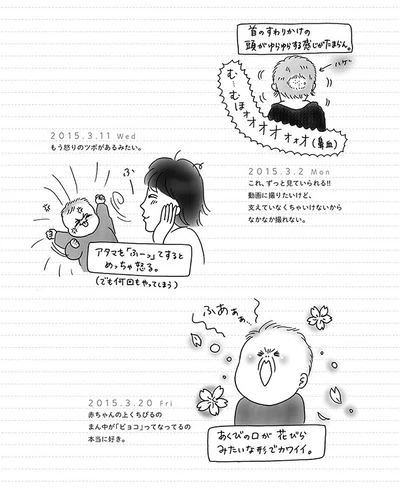 首のすわりかけの
頭がゆらゆらする感じがたまらん。
ハゲ
む…むほォオオオォォオ(鼻血)
2015.3.2 Mon
これ、ずっと見ていられる!!
動画に撮りたいけど、
支えていなくちゃいけないから
なかなか撮れない。
2015.3.11 Wed
もう怒りのツボがあるみたい。
ふー
アタマを「ふーっ」てすると
めっちゃ怒る。
(でも何回もやってしまう)
ふあぁぁ…
2015.3.20 Fri
赤ちゃんの上くちびるの
まん中が「ピョコ」ってなってるの
本当に好き。
あくびの口が花びら
みたいな形でカワイイ。